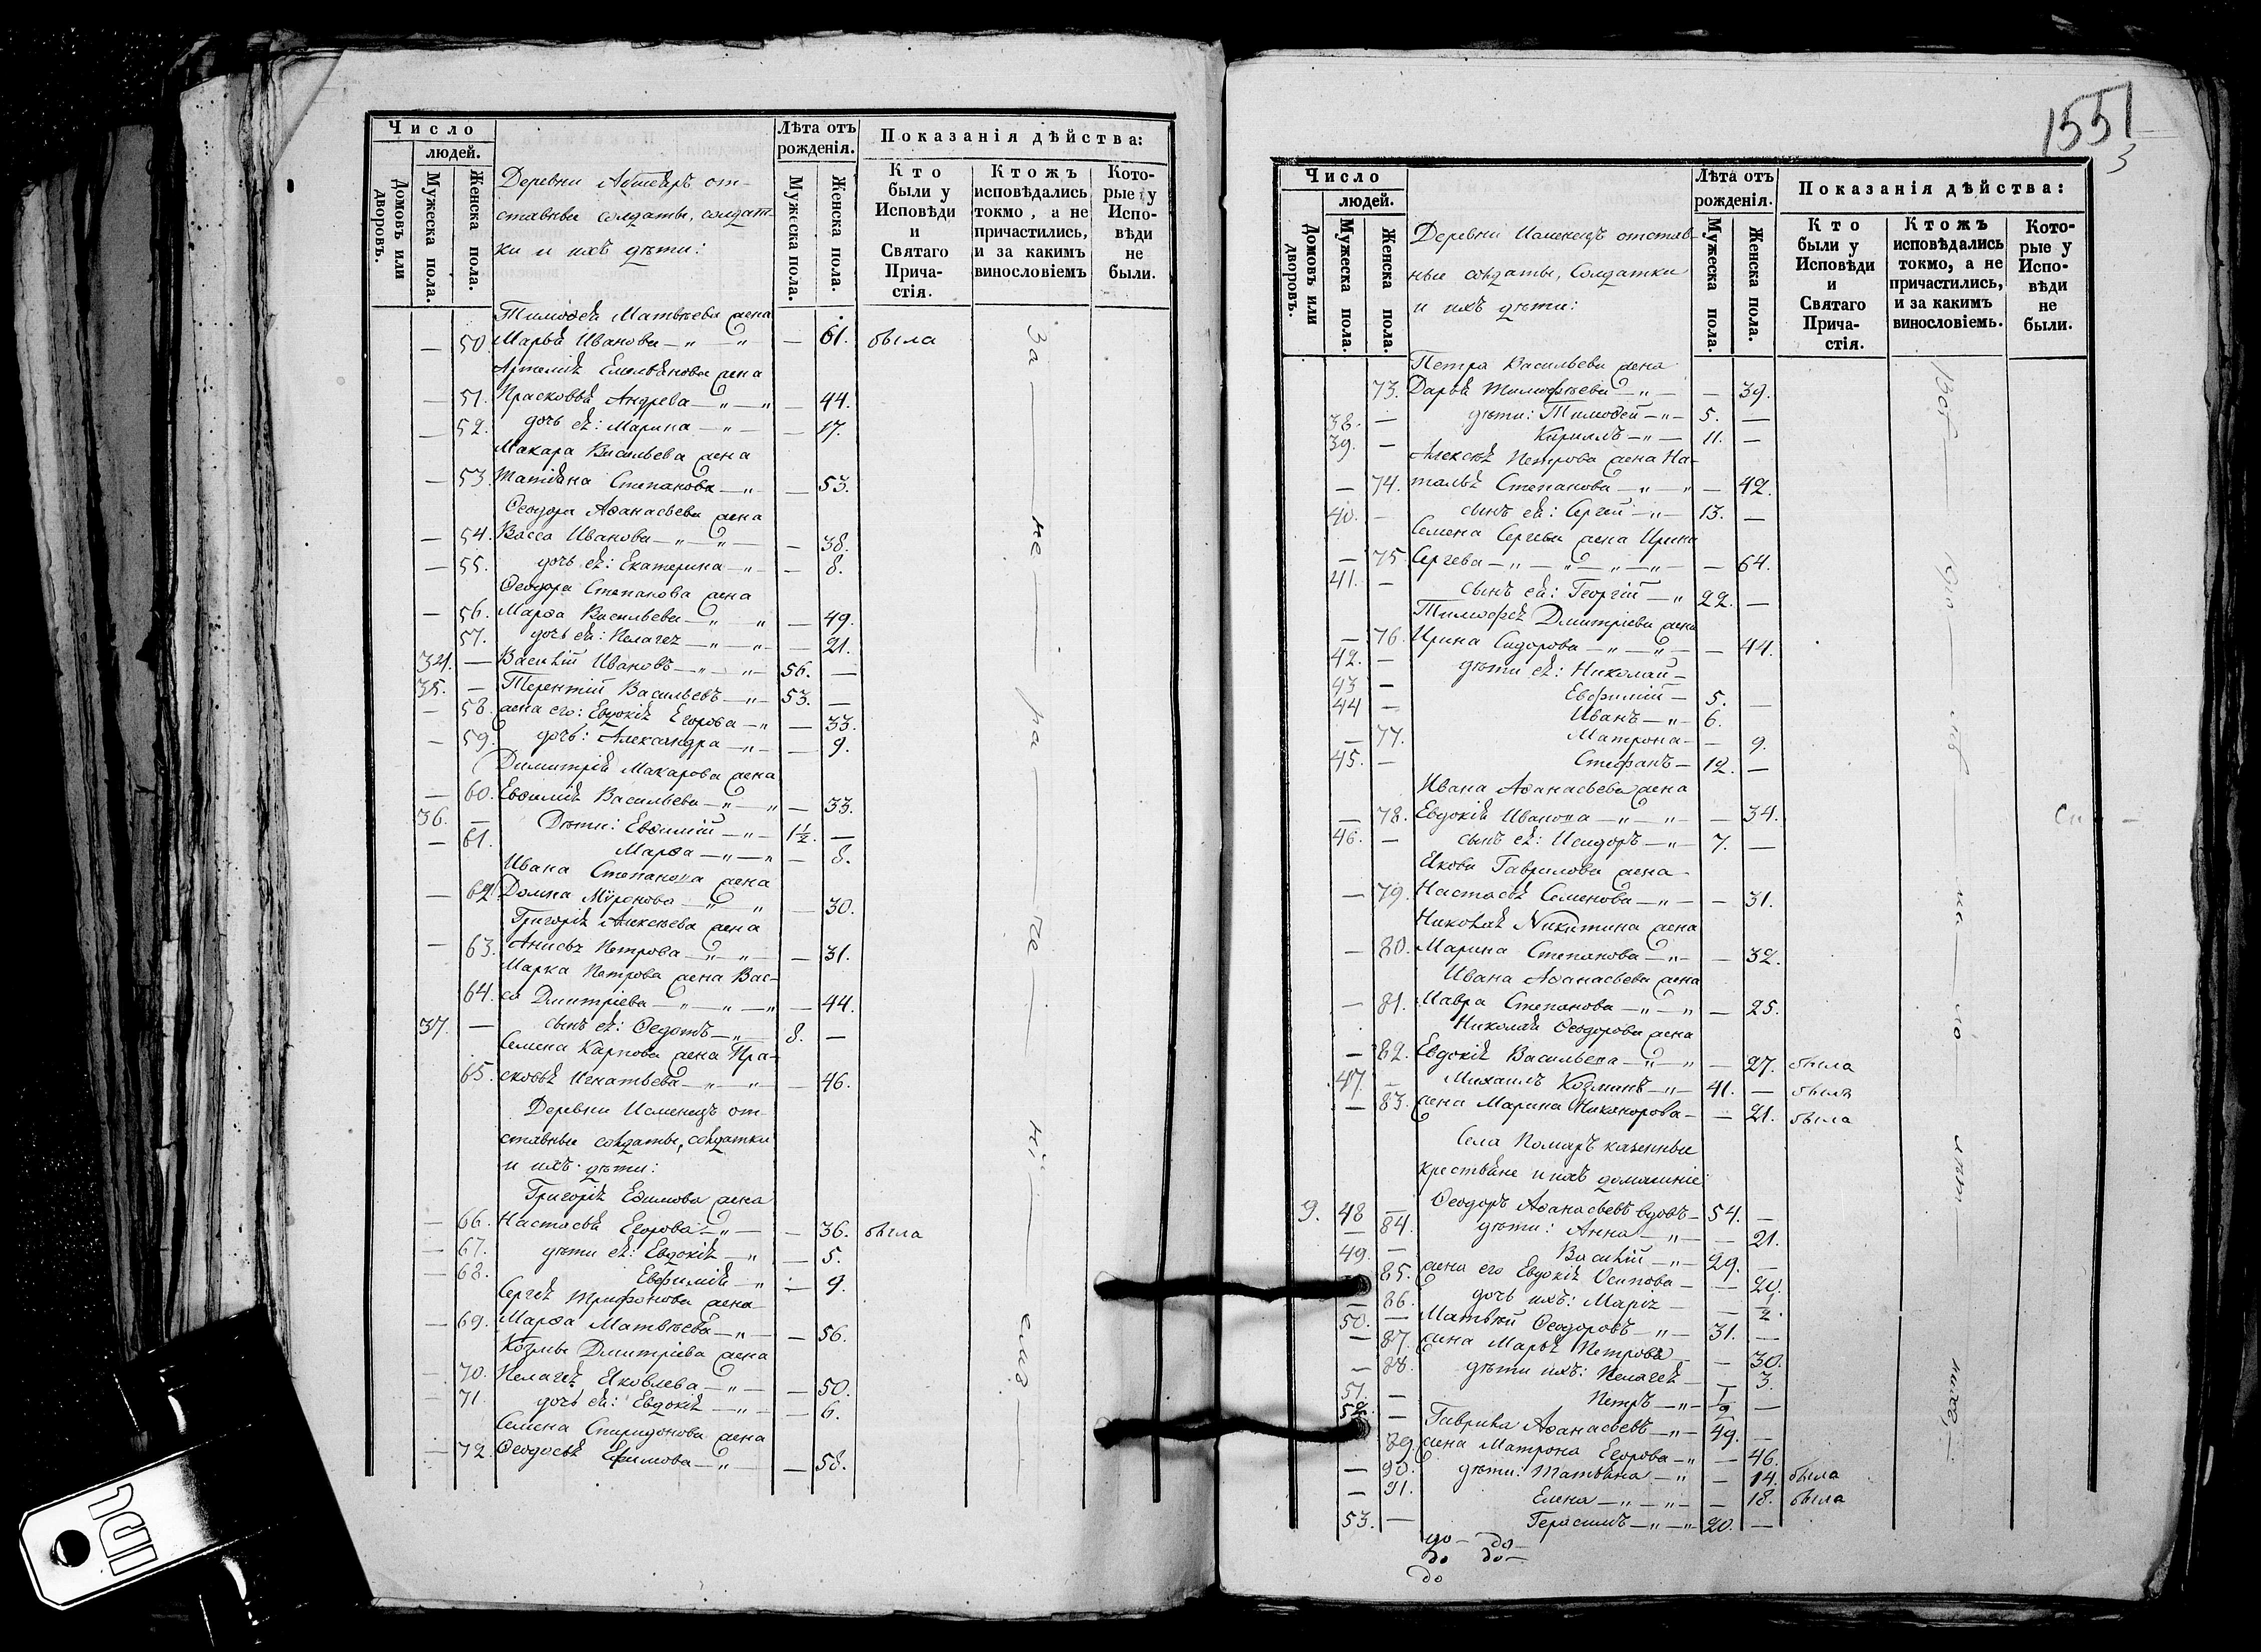 Число
людей.
Домовъ или дворовъ.
Мужеска пола.
Женска пола.
Деревни от-
ставные солдаты, солдат-
ки и ихъ дѣти:
Лѣта отъ рожденія.
Мужеска пола.
Женска пола.
Показанія дѣйства:
Кто были у Исповѣди и Святаго Прича-стія.
Ктожъ исповѣдались токмо, а не причастились, и за какимъ винословіемъ
Кото-рые у Испо-вѣди не были.
Тимоѳея Матвѣева жена
— 50. Марья Иванова — 61. была
Артемія Емельянова жена
— 51. Прасковья Андрева — 44.
— 52. дочь ея: Марина — 17.
Макара Васильева жена
— 53. Татіяна Степанова — 53.
Ѳеодора Аѳанасьева жена
— 54. Васса Иванова — 38.
— 55. дочь ея: Екатерина — 8.
Ѳеодора Степанова жена
— 56. Марѳа Васильева — 49.
57. дочь ея: Пелагея — 21.
34. — Василій Ивановъ 56. —
35. — Терентій Васильевъ 53. —
— 58. жена его: Евдокія Егорова — 33.
— 59. дочь: Александра — 9.
Димитрія Макарова жена
— 60. Евѳимія Васильева — 33.
36. — Дѣти: Евѳимій 1½. —
— 61. Марѳа — 8.
Ивана Степанова жена
— 62. Домна Мѵронова — 30.
Григорія Алексѣева жена
— 63. Анисья Петрова — 31.
Марка Петрова жена Вас-
64. са Дмитріева — 44.
37. — сынъ ея: Ѳедотъ 8. —
Семена Карпова жена Пра-
65. сковья Игнатьева — 46.
Деревни Исменецъ от-
ставные солдаты, солдатки
и ихъ дѣти:
Григорія Еѳимова жена
— 66. Настасья Егорова — 36. была
— 67. дѣти ея: Евдокія — 5.
— 68. Евфимія — 9.
Сергея Трифонова жена
— 69. Марѳа Матвѣева — 56.
Козмы Дмитріева жена
— 70. Пелагея Яковлева — 50.
— 71. дочь ея: Евдокія — 6.
Семена Спиридонова жена
— 72. Ѳеодосья Ефимова — 58.
За — не — ра — че — ні — емъ
1551
3
Число
людей.
Домовъ или дворовъ.
Мужеска пола.
Женска пола.
Деревни Исменецъ отстав-
ные солдаты, Солдатки
и ихъ дѣти:
Лѣта отъ рожденія.
Мужеска пола.
Женска пола.
Показанія дѣйства:
Кто были у Исповѣди и Святаго Прича-стія.
Ктожъ исповѣдались токмо, а не причастились, и за какимъ винословіемъ.
Кото-рые у Испо-вѣди не были.
Петра Васильева жена
73. Дарья Тимофѣева — 39.
38. — дѣти: Тимоѳей 5. —
39. — Кириллъ 11. —
Алексѣя Петрова жена На-
— 74. талья Степанова — 42.
40. — сынъ ея: Сергей 13. —
Семена Сергева жена Ирина
— 75. Сергева — 64.
41. — сынъ ея: Георгій 22. —
Тимофея Дмитріева жена
— 76. Ирина Сидорова — 44.
42. — дѣти ея: Николай —
43 — Евфимій — 5. —
44 — Иванъ 6.
— 77. Матрона — 9.
45. — Стефанъ — 12. —
Ивана Аѳанасьева жена
— 78. Евдокія Иванова — 34.
46. — сынъ ея: Исидоръ 7. —
Якова Гаврилова жена
— 79. Настасья Семенова — 31.
Николая Никитина жена
— 80. Марина Степанова — 32.
Ивана Аѳанасьева жена
— 81. Мавра Степанова — 25.
Николая Ѳеодорова жена
— 82. Евдокія Васильева — 27. была
47. — Михаилъ Козминъ 41. — былъ
— 83. жена Марина Никонорова — 21. была
Села Помаръ казенные
крестьяне и ихъ домашніе
9. 48 — Ѳеодоръ Аѳанасьевъ вдовъ 54. —
— 84. дѣти: Анна — 21.
49. — Василій 29. —
85. жена его Евдокія Осипова — 20.
— 86. дочь ихъ: Марія — ½.
50. — Матвѣй Ѳеодоровъ 31. —
— 87. жена Марья Петрова — 30.
— 88. дѣти ихъ: Пелагея — 3.
51. — Петръ ½ —
52. — Гаврила Аѳанасьевъ 49. —
89. жена Матрона Егорова — 46.
— 90. дѣти: Татьяна — 14. была
— 91. Елена — 18. была
53. — Герасимъ 20. —
до — до —
до до —
до